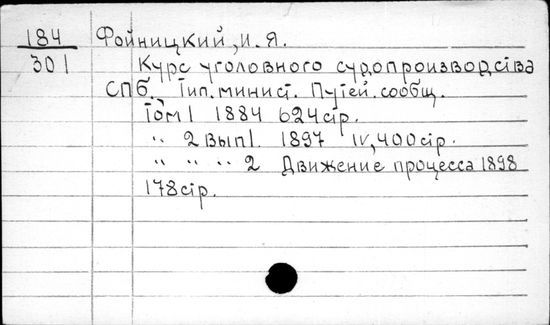 184 Фойницкий, И. Я.
301 Курс уголовного судопроизводства
СПб. Тип. минист. Путей. сообщ.
Том 1 1884 624стр.
" 2 вып1. 1897 IV, 400стр.
" " " 2 Движение процесса 1898
178стр.